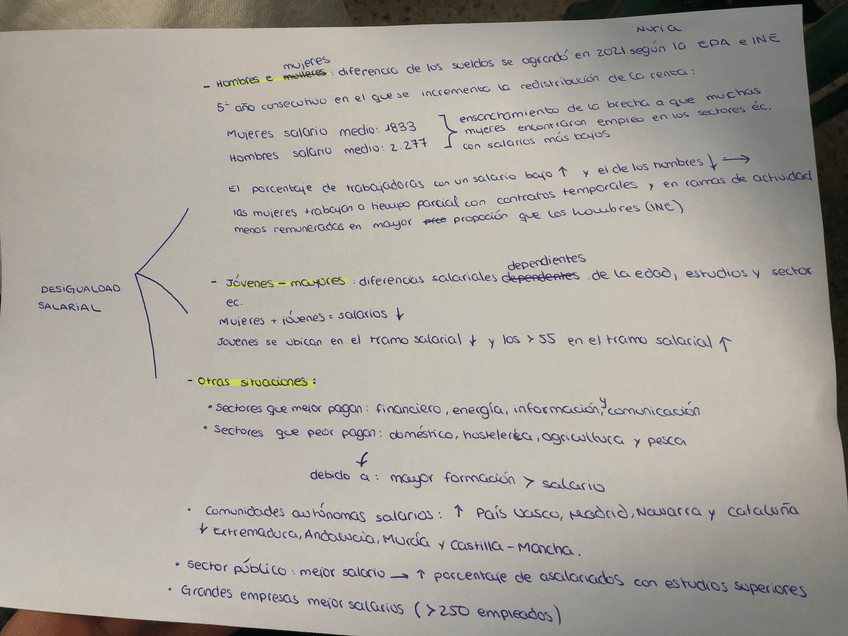 Nuria
mujeres
- Hombres e mulleres: diferencia de los sueldos se agrandó en 2021 según la EPA e INE
5º año consecutivo en el que se incrementa la redistribución de la renta:
Mujeres salario medio: 1833
Hombres salario medio: 2.277
ensanchamiento de la brecha a que muchas
mujeres encontraron empleo en los sectores éc.
con salarios más bajos
El porcentaje de trabajadoras con un salario bajo ↑ y el de los hombres ↓ →
las mujeres trabajan a tiempo parcial con contratos temporales y en ramas de actividad
menos remuneradas en mayor propoción que los hombres (INE)
DESIGUALDAD
SALARIAL
dependientes
- Jóvenes - mayores: diferencias salariales dependentes de la edad, estudios y sector
ec.
Mujeres + jóvenes = salarios ↓
Jovenes se ubican en el tramo salarial ↓ y los >55 en el tramo salarial ↑
- Otras situaciones:
• Sectores que mejor pagan: financiero, energía, información, y comunicación
• Sectores que peor pagan: doméstico, hostelería, agricultura y pesca
↓
debido a: mayor formación > salario
• Comunidades autónomas salarios: ↑ País Vasco, Madrid, Navarra y Cataluña
↓ Extremadura, Andalucia, Murcia y Castilla-Mancha.
• Sector público: mejor salario → ↑ porcentaje de asalariados con estudios superiores
• Grandes empresas mejor salarios (>250 empleados)